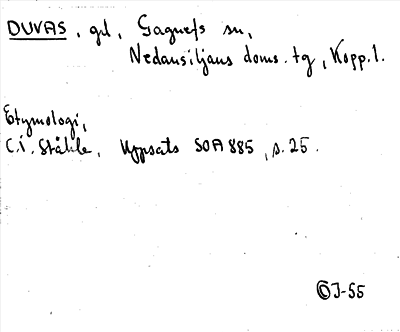 DUVAS, gd, Gagnefs sn,
Nedansiljans doms. tg, Kopp. l.
Etymologi,
C.I. Ståhle, Uppsats SOA 885, s. 25.
J-55